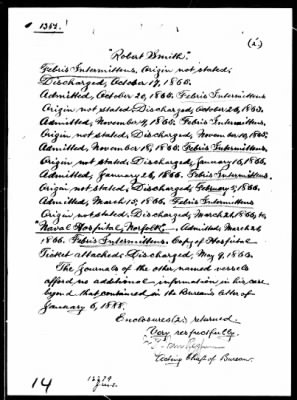 1384.
(2)
"Robert Smith."
Febris Intermittens, Origin not stated;
Discharged, October 17, 1865.
Admitted, October 20, 1865. Febris Intermittens
Origin not stated. Discharged, October 26, 1865.
Admitted, November 9, 1865. Febris Intermittens.
Origin not stated; Discharged, November 10, 1865.
Admitted, November 18, 1865. Febris Intermittens
Origin not stated, Discharged, January 16, 1866.
Admitted, January 26, 1866. Febris Intermittens.
Origin, not stated, Discharged, February 5, 1866.
Admitted, March 15, 1866. Febris Intermittens
Origin not stated, Discharged, March 26, 1866, to
"Naval Hospital, Norfolk. Admitted, March 26
1866. Febris Intermittens. Copy of Hospital
Ticket attached; Discharged, May 9, 1866.
The Journals of the other named vessels
afford no additional information in his case
beyond that contained in the Bureau's letter of
January 6, 1888.
Enclosures (2) returned.
Very respectfully,
Acting Chief of Bureau.
14